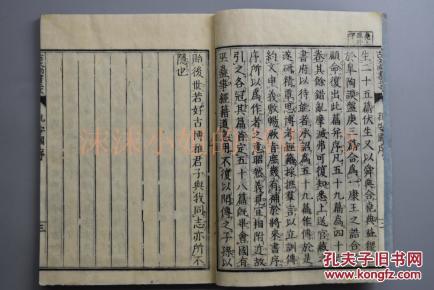 生二十五篇伏生又以舜典合於堯典益稷
合於皋陶謨盤庚三篇合爲一康王之誥合於
顧命復出此篇并序凡五十九篇爲四十六
卷其餘錯亂摩滅弗可復知悉上送官藏之
書府以待能者承詔爲五十九篇作傳於是
遂研精覃思博考經籍採摭羣言以立訓傳
約文申義敷暢厥旨庶幾有補於將來書序
序所以爲作者之意昭然義見宜相附近故
引之各冠其篇首定五十八篇既畢會國有
巫蠱事經籍道息用不復以聞傳之子孫以
貽後世若好古博雅君子與我同志亦所不
隱也
三
沐沐小
孔夫子旧书网